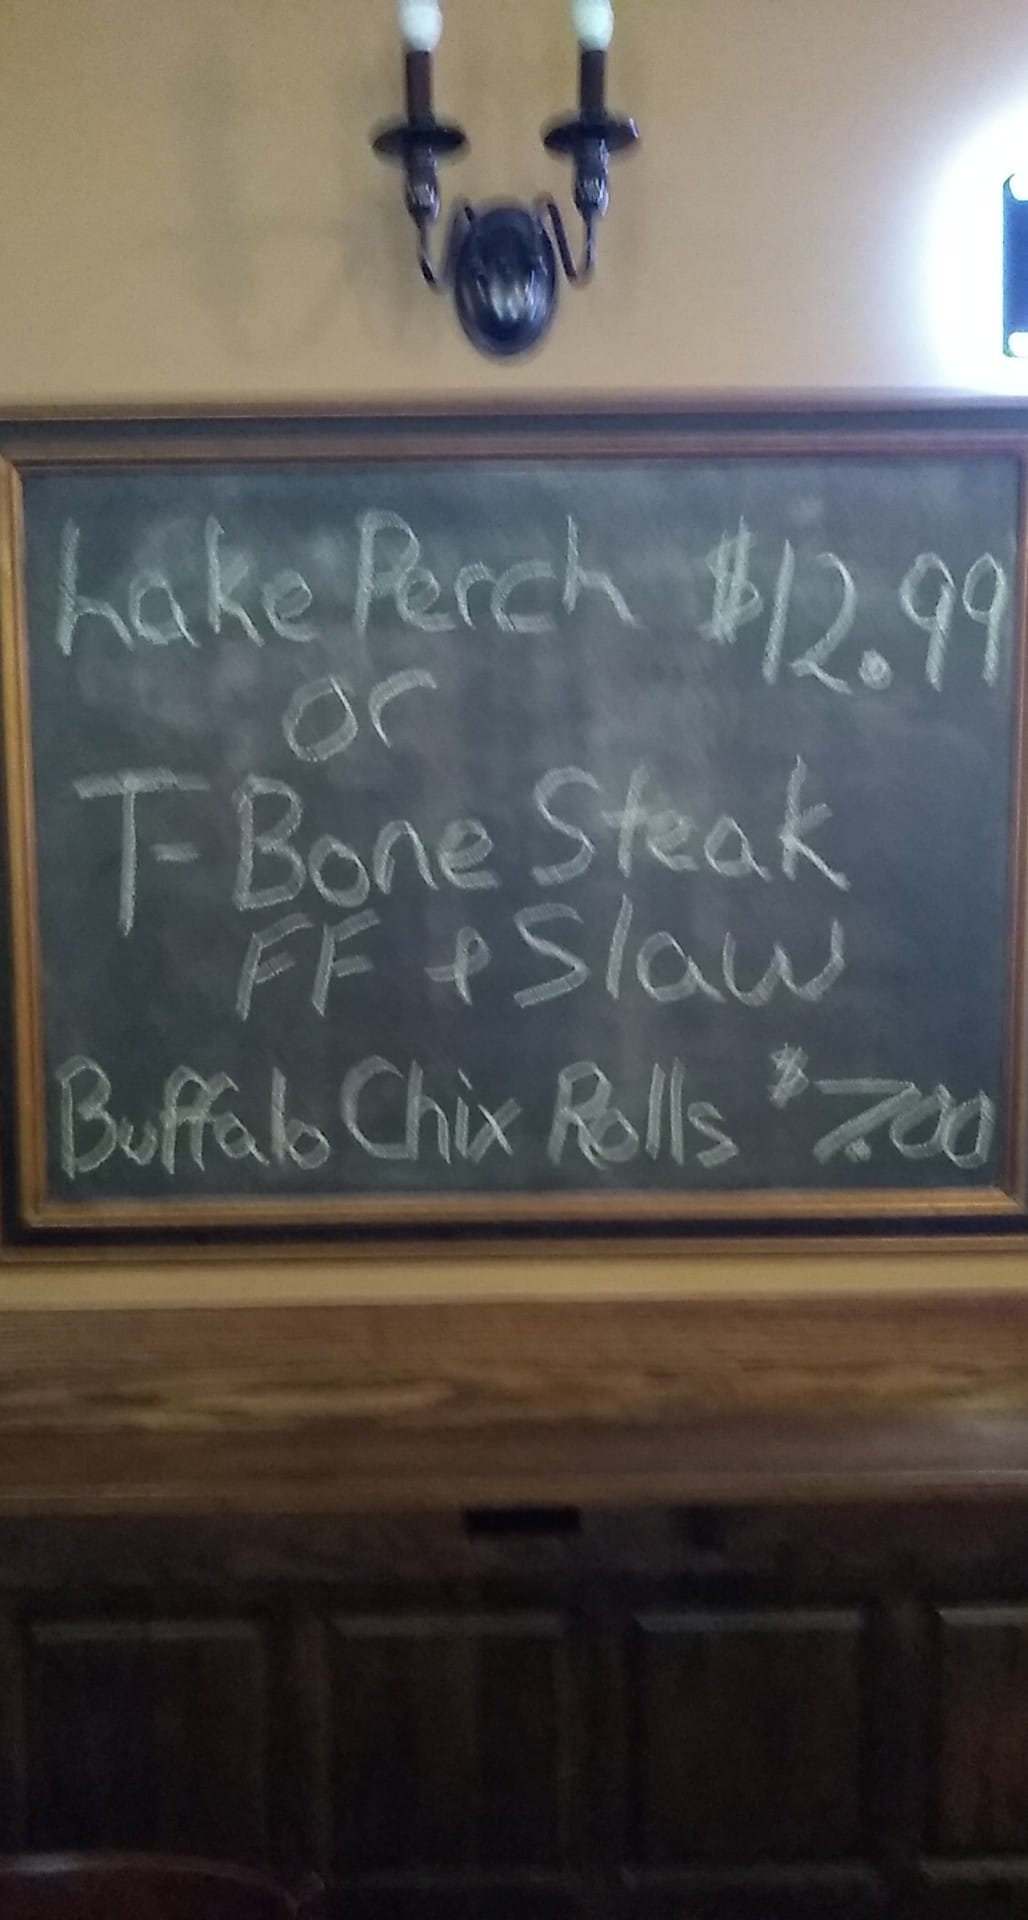 Lake Perch $12.99
or
T-Bone Steak
FF & Slaw
Buffalo Chix Rolls $7.00